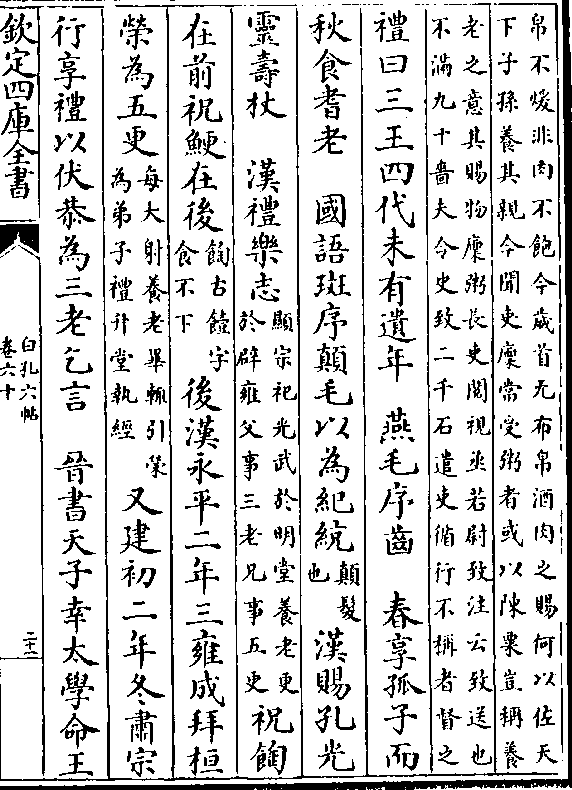 帛不煖非肉不飽今歲首无布帛酒肉之賜何以佐天
下子孫養其親今聞吏廩當受粥者或以陳粟豈稱養
老之意其賜物廩粥長吏閱視丞若尉致注云致送也
不滿九十嗇夫令史致二千石遣吏循行不稱者督之
禮曰三王四代未有遺年　燕毛序齒　春享孤子而
秋食耆老　國語班序顛毛以為紀統顛髮也　漢賜孔光
靈壽杖　漢禮樂志顯宗祀光武於明堂養老更於辟雍父事三老兄事五更　祝餇
在前祝鯁在後餇古饐字食不下　後漢永平二年三雍成拜桓
榮為五更每大射養老畢輒引榮為弟子禮升堂執經　又建初二年冬肅宗
行享禮以伏恭為三老乞言　晉書天子幸太學命王
欽定四庫全書
白孔六帖
卷六十
二十二